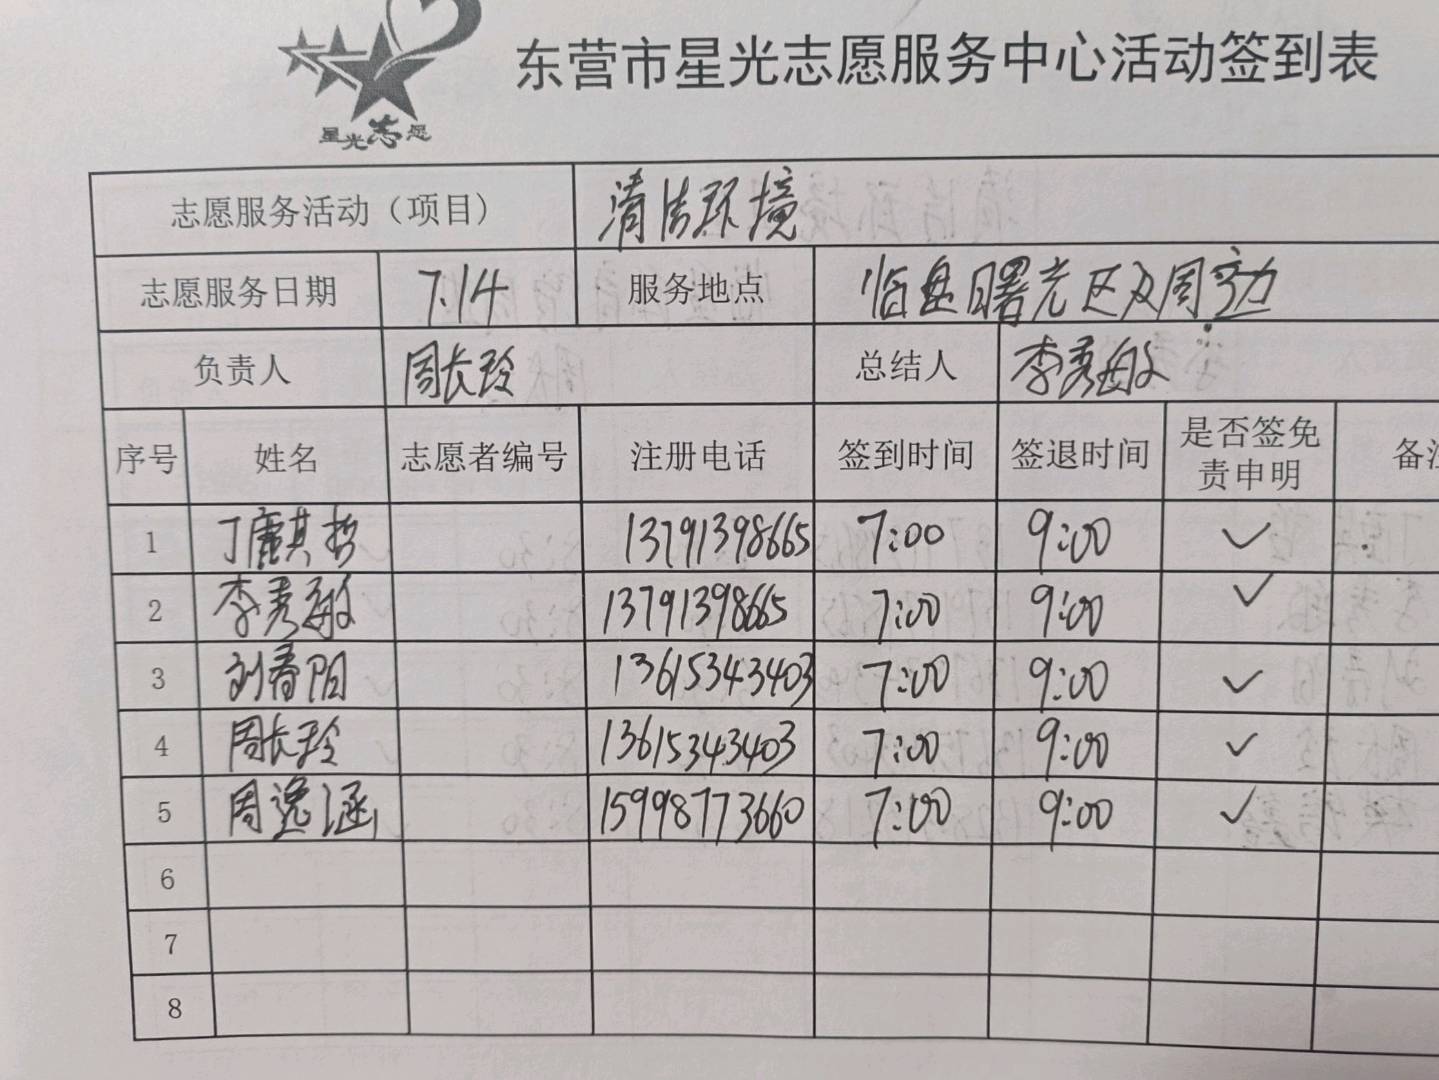 星光志愿
东营市星光志愿服务中心活动签到表
志愿服务活动（项目） 清洁环境
志愿服务日期 7.14 服务地点 临盘曙光区及周边
负责人 周长玲 总结人 李秀敏
序号 姓名 志愿者编号 注册电话 签到时间 签退时间 是否签免责申明 备注
1 丁麒哲 13791398665 7:00 9:00 ✓
2 李秀敏 13791398665 7:00 9:00 ✓
3 刘春阳 13615343403 7:00 9:00 ✓
4 周长玲 13615343403 7:00 9:00 ✓
5 周逸涵 15998773660 7:00 9:00 ✓
6
7
8